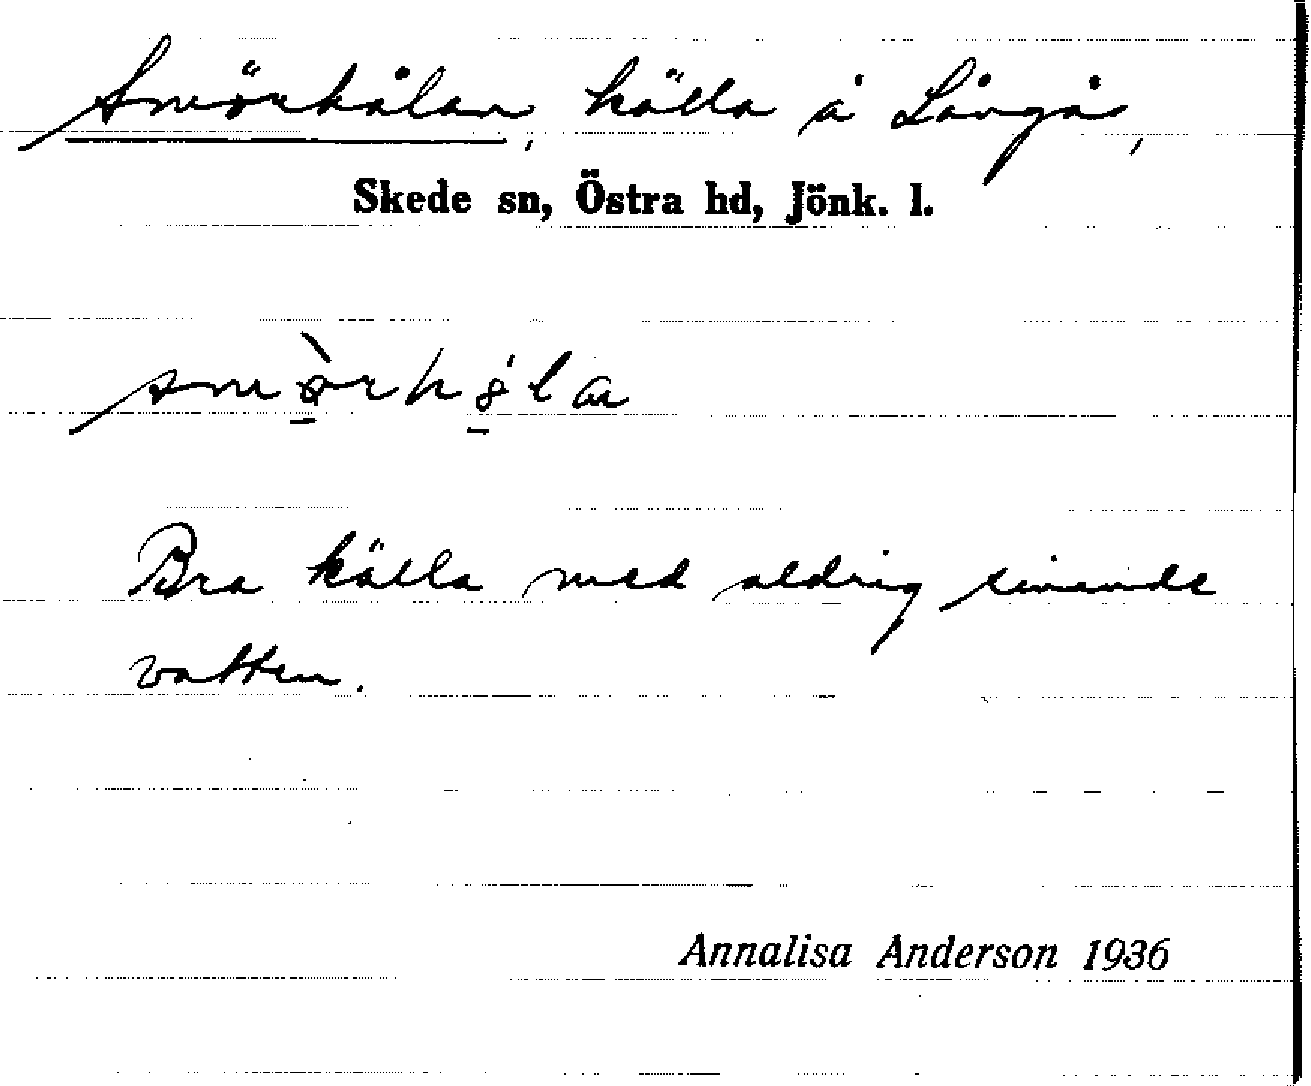 Smörhålan, källa å Långå,
Skede sn, Östra hd, Jönk. l.
Bra källa med aldrig sinande
vatten.
Annalisa Anderson 1936